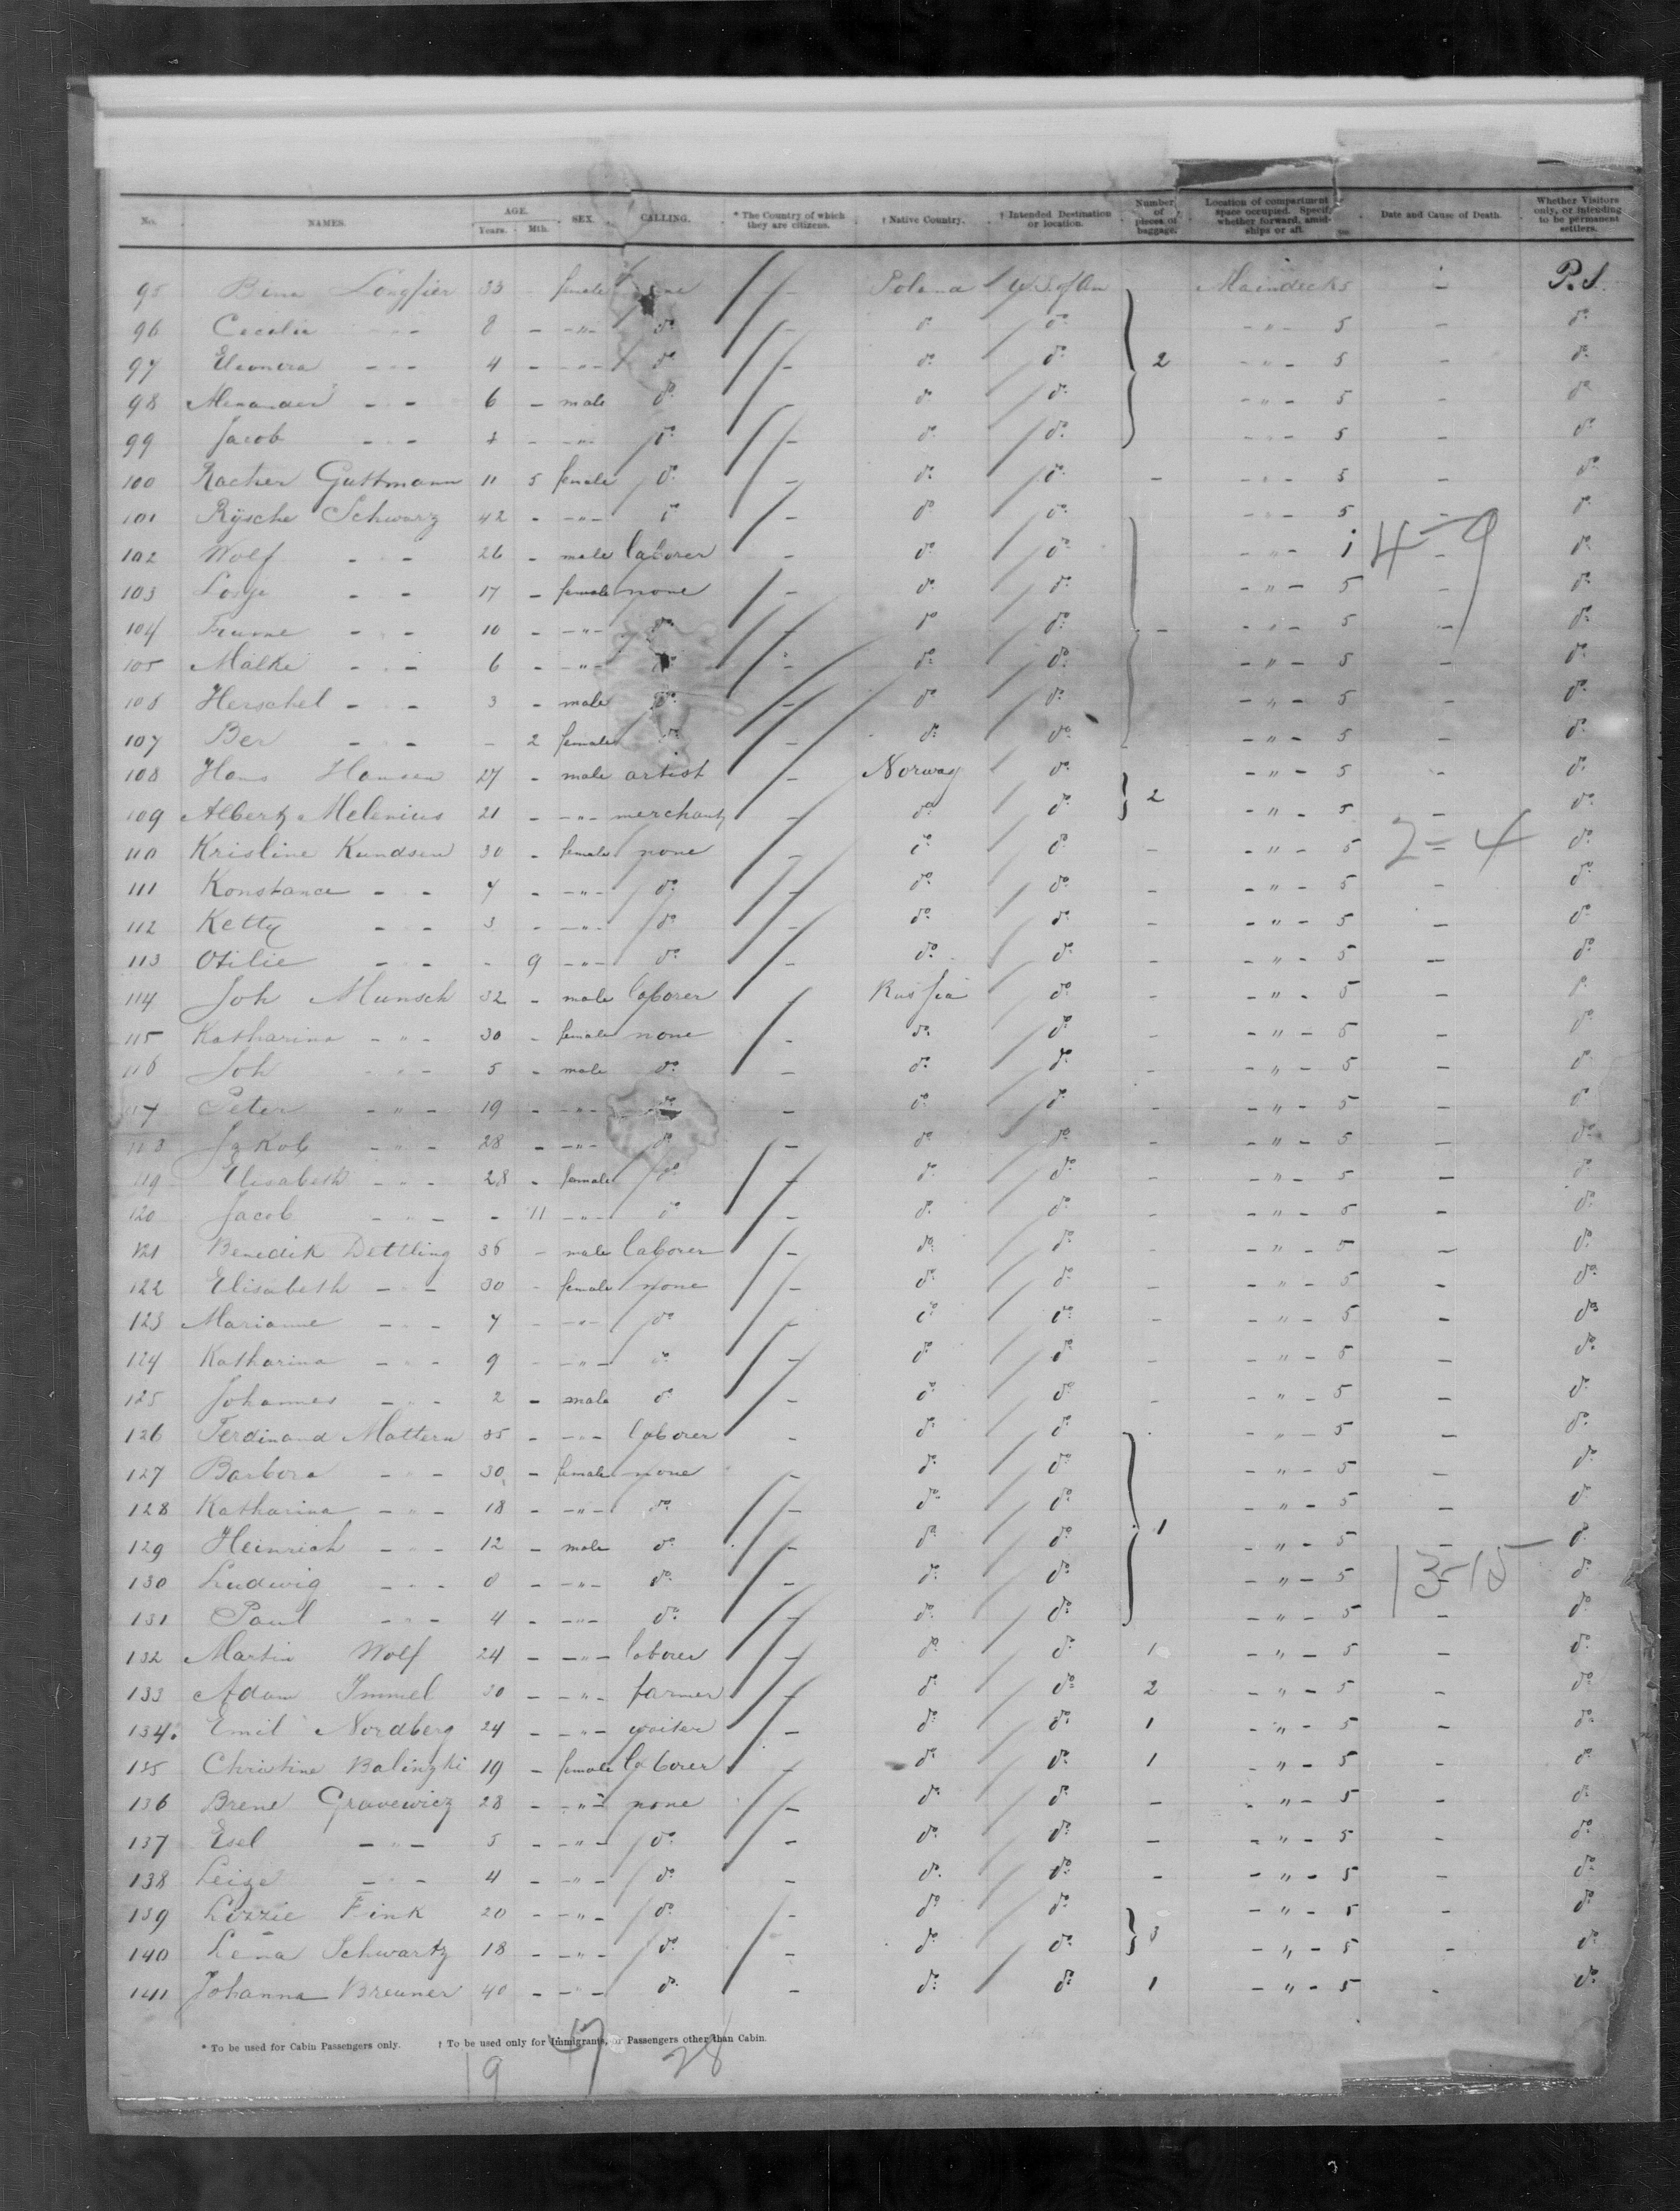 No. NAMES. AGE. Years. Mth. SEX. CALLING. * The Country of which they are citizens. † Native Country. † Intended Destination or location. Number of pieces of baggage. Location of compartment space occupied. Specify whether forward, amidships or aft. Date and Cause of Death. Whether Visitors only, or intending to be permanent settlers.
95 Bena 33 - female - Poland U.S. of Am Maindeck 5 - P.S.
96 Cecilie - - - 8 - -"- do - do do -"- 5 - do
97 Eleonora - - - 4 - -"- do - do do 2 -"- 5 - do
98 Alexander - - - 6 - male do - do do -"- 5 - do
99 Jacob - - - - -"- do - do do -"- 5 - do
100 Guttmann 11 5 female do - do do - -"- 5 - do
101 Schwarz 42 - -"- do - do do -"- 5 - do
102 Wolf - - - 26 - male laborer - do do -"- - do
103 - - - 17 - female none - do do -"- 5 - do
104 - - - 10 - -"- do - do do - -"- 5 - do
105 Malke - - - 6 - -"- do - do do -"- 5 - do
106 Herschel - - - 3 - male do - do do -"- 5 - do
107 Ber - - - - 2 female do - do do -"- 5 - do
108 Hans Hansen 27 - male artist - Norway do -"- 5 - do
109 Albert Melenius 21 - -"- merchant - do do 2 -"- 5 - do
110 Kristine Kundsen 30 - female none - do do - -"- 5 - do
111 Konstance - - - 7 - -"- do - do do - -"- 5 - do
112 Ketty - - - 3 - -"- do - do do - -"- 5 - do
113 Otilie - - - - 9 -"- do - do do - -"- 5 - do
114 Joh Munsch 32 - male laborer - Russia do - -"- 5 - do
115 Katharina -"- 30 - female none - do do - -"- 5 - do
116 Joh -"- 5 - male do - do do - -"- 5 - do
117 Peter -"- 19 - -"- do - do do - -"- 5 - do
118 Jakob -"- 28 - -"- do do do - -"- 5 - do
119 Elisabeth -"- 28 - female do - do do - -"- 5 - do
120 Jacob -"- - 11 -"- do - do do - -"- 5 - do
121 Benedik Dettling 36 - male laborer - do do - -"- 5 - do
122 Elisabeth - - - 30 - female none - do do - -"- 5 - do
123 Marianne - - - 7 - -"- do - do do - -"- 5 - do
124 Katharina - - - 9 - -"- do - do do - -"- 5 - do
125 Johannes - - - 2 - male do - do do - -"- 5 - do
126 Ferdinand Mattern 35 - -"- laborer - do do -"- 5 - do
127 Barbara - - - 30 - female none - do do -"- 5 - do
128 Katharina -"- 18 - -"- do - do do -"- 5 - do
129 Heinrich - - - 12 - male do - do do 1 -"- 5 - do
130 Ludwig - - - 8 - -"- do - do do -"- 5 - do
131 Paul -"- 4 - -"- do - do do -"- 5 - do
132 Martin Wolf 24 - -"- laborer - do do 1 -"- 5 - do
133 Adam Immel 30 - -"- farmer - do do 2 -"- 5 - do
134 Emil Nordberg 24 - -"- waiter - do do 1 -"- 5 - do
135 Christine Balinzki 19 - female laborer - do do 1 -"- 5 - do
136 Brene Gravewicz 28 - -"- none - do do - -"- 5 - do
137 Esel -"- 5 - -"- do - do do - -"- 5 - do
138 Leize -"- 4 - -"- do - do do - -"- 5 - do
139 Lizzie Fink 20 - -"- do - do do -"- 5 - do
140 Lena Schwartz 18 - -"- do - do do 3 -"- 5 - do
141 Johanna Breuner 40 - -"- do - do do 1 -"- 5 - do
4-9
2=4
13-15
* To be used for Cabin Passengers only. † To be used only for Immigrants, or Passengers other than Cabin.
19 28